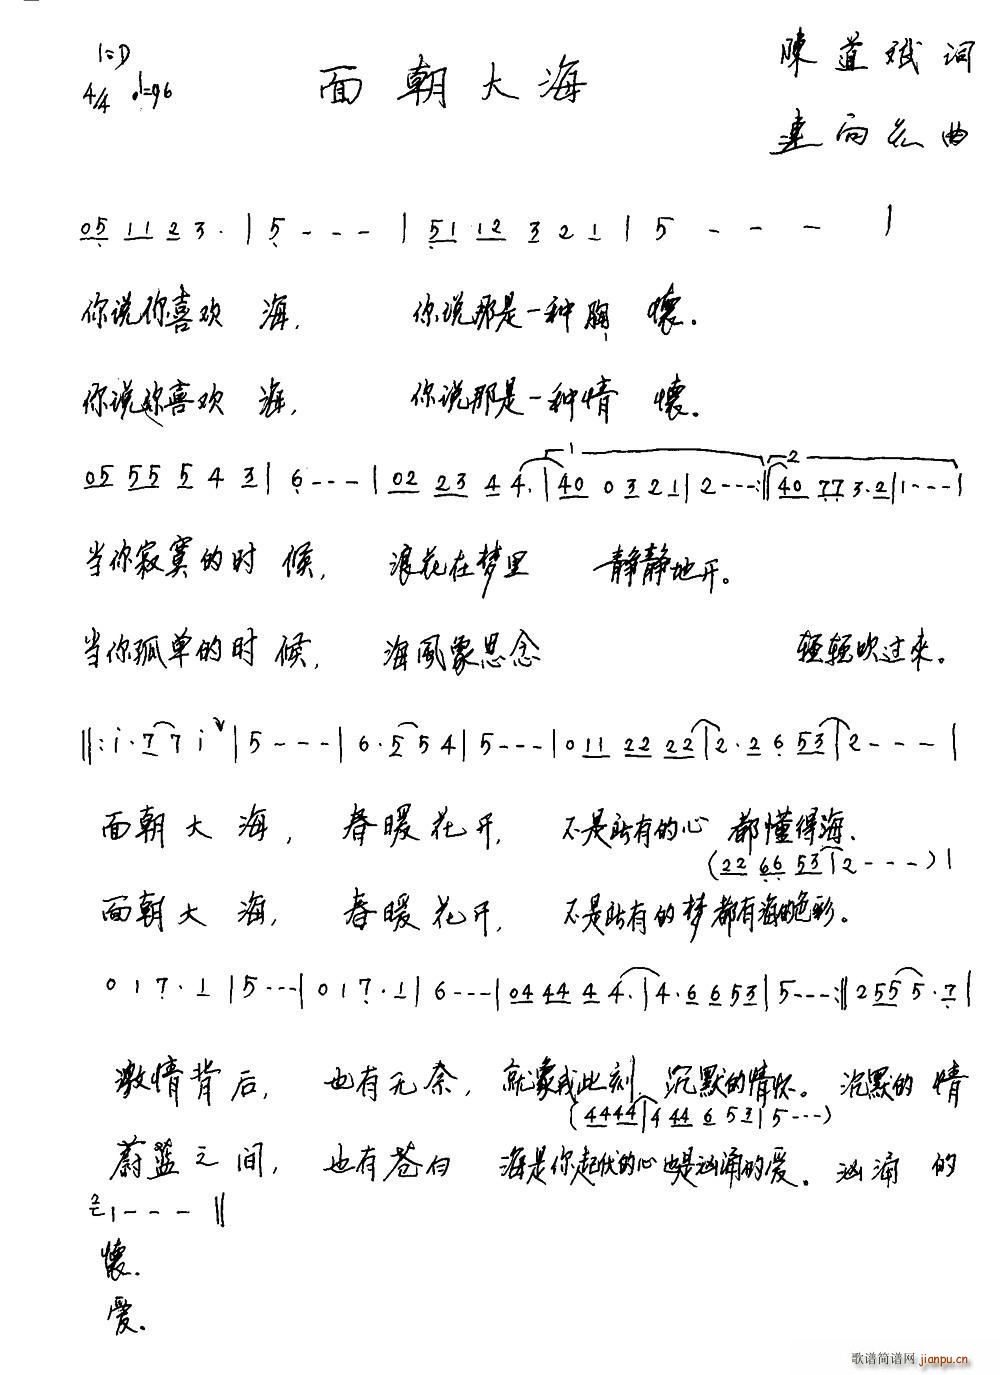 1=D
4/4 ♩=96
面朝大海
陳道斌 词
連向 曲
05 11 2 3 · | 5 - - - | 51 12 3 2 1 | 5 - - - |
你说你喜欢 海, 你说那是一种胸 懷.
你说你喜欢 海, 你说那是一种情 懷.
05 55 5 4 3 | 6 - - - | 02 23 4 4. | 1 40 0 3 2 1 | 2 - - - :|| 2 40 77 3·2 | 1 - - - |
当你寂寞的时 候, 浪花在梦里 静静地开。
当你孤单的时 候, 海風象思念 轻轻吹过来。
||: i · 7 7 i | 5 - - - | 6 · 5 5 4 | 5 - - - | 0 11 22 22 | 2 · 2 6 53 | 2 - - - |
面朝 大 海, 春暖花开, 不是所有的心 都懂得海.
(22 66 53 | 2 - - - ) |
面朝 大 海, 春暖花开, 不是所有的梦都有海的色彩。
0 1 7 · 1 | 5 - - - | 0 1 7 · 1 | 6 - - - | 04 44 4 4. | 4 · 6 6 53 | 5 - - - :|| 2 55 5 · 7 |
激情背后, 也有无奈, 就象我此刻 沉默的情怀。 沉默的 情
(4444 | 4 44 6 53 | 5 - - - )
蔚蓝之间, 也有苍白 海是你起伏的心也是汹涌的爱. 汹涌 的
2 1 - - - ||
懷.
爱.
歌谱简谱网 jianpu.cn